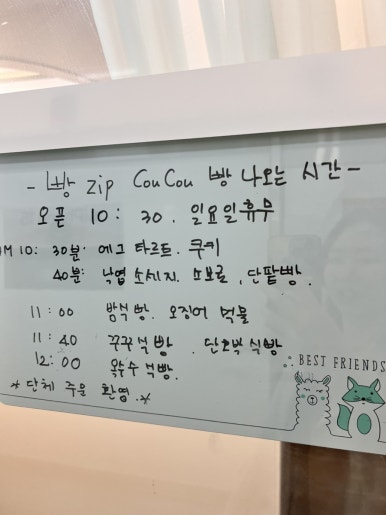 - 빵 zip CouCou 빵 나오는 시간 -
오픈 10 : 30 . 일요일휴무
AM 10: 30분: 에그 타르트. 쿠키
40분: 낙엽 소세지. 소보로, 단팥빵.
11 : 00 밤식빵. 오징어 먹물
11 : 40 꾸꾸식빵 . 단호박 식빵
12: 00 옥수수 식빵.
* 단체 주문 환영. *
BEST FRIENDS